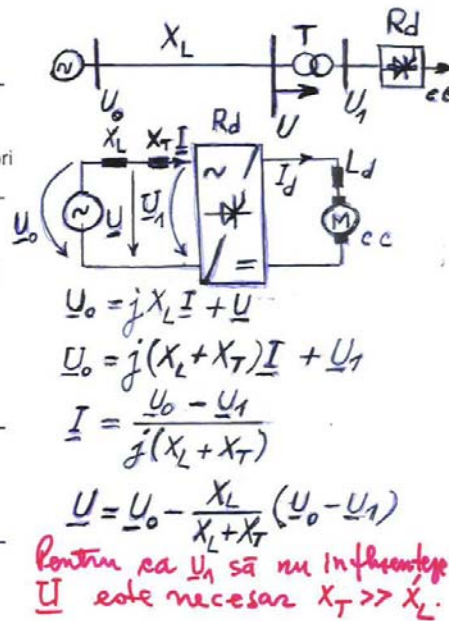 X_L T Rd
~ U_0 U U_1 cc
ri
X_L X_T I Rd I_d L_d
U_0 ~ U U_1 ~ = M cc
U_0 = j X_L I + U
U_0 = j(X_L + X_T) I + U_1
I = (U_0 - U_1) / j(X_L + X_T)
U = U_0 - X_L / (X_L + X_T) (U_0 - U_1)
Pentru ca U_1 să nu influențeze
U este necesar X_T >> X_L.